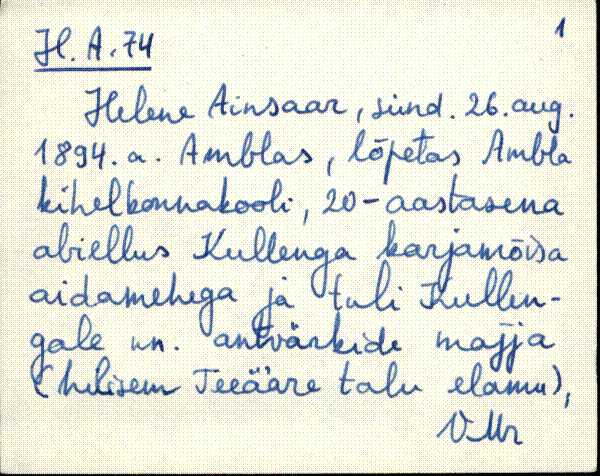 1
H. A. 74
Helene Ainsaar, sünd. 26. aug.
1894. a. Amblas, lõpetas Ambla
kihelkonnakooli, 20-aastasena
abiellus Kullenga karjamõisa
aidamehega ja tuli Kullen-
gale nn. antvärkide majja
(hilisem Teeääre talu elamu),
VMr